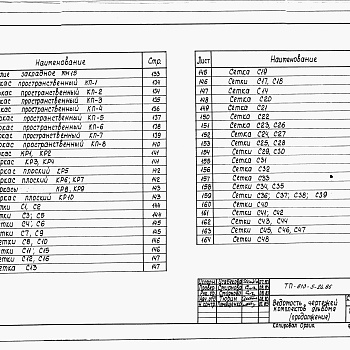 Наименование Стр.
закладное МН15 133
пространственный КП-1 134
пространственный КП-2 134
пространственный КП-3 135
пространственный КП-4 136
пространственный КП-5 137
пространственный КП-6 138
пространственный КП-7 139
пространственный КП-8 140
КР1, КР2 141
КР3, КР4 141
плоский КР5 142
плоский КР6; КР7 142
КР8, КР9 143
плоский КР10 143
С1, С2 144
С3; С5 144
С4; С6 145
С7, С9 145
С8, С10 146
С11; С12 146
С13 147
Лист Наименование
146 Сетка С19
Сетки С17, С18
147 Сетка С14
148 Сетка С20
149 Сетка С21
150 Сетка С22
151 Сетки С23, С26
152 Сетки С24, С27
153 Сетки С25, С28
154 Сетки С29, С30
155 Сетка С31
156 Сетка С32
157 Сетка С33
158 Сетки С34, С35
159 Сетки С36; С37; С38; С39
160 Сетка С40
161 Сетки С41, С42
162 Сетки С43, С44
163 Сетки С45, С46, С47
164 Сетка С48
Ведомость чертежей
комплектов альбома
(продолжение)
Копировал